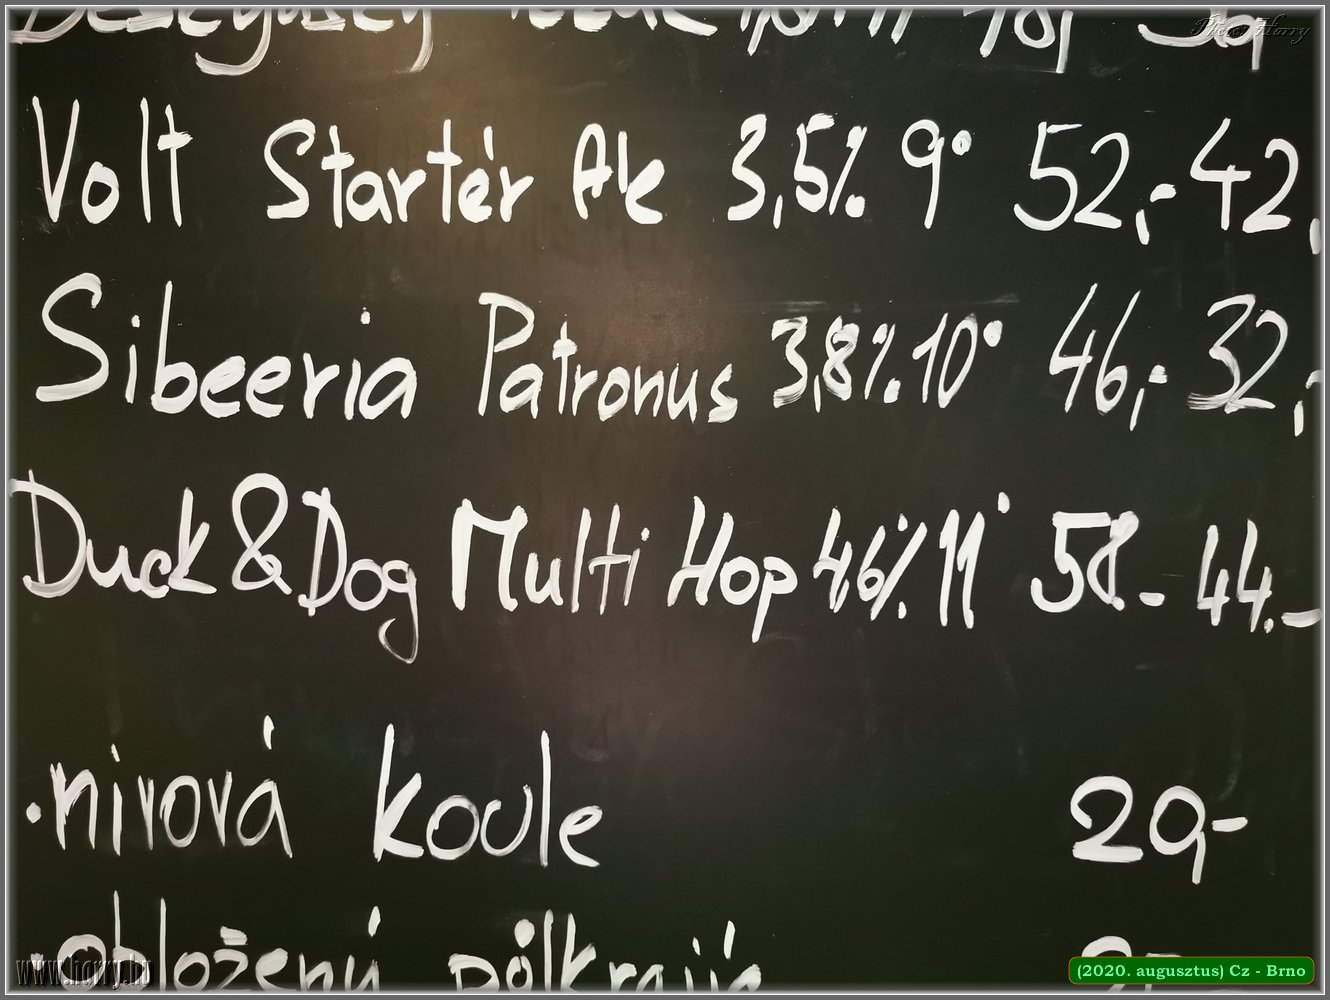 Photo: Horry
Volt Startér Ale 3,5% 9° 52,- 42,
Sibeeria Patronus 3,8% 10° 46,- 32,-
Duck & Dog Multi Hop 46% 11° 58.- 44.-
·nivová koule 29,-
·obložený půlkrajíc
www.horry.hu
(2020. augusztus) Cz - Brno